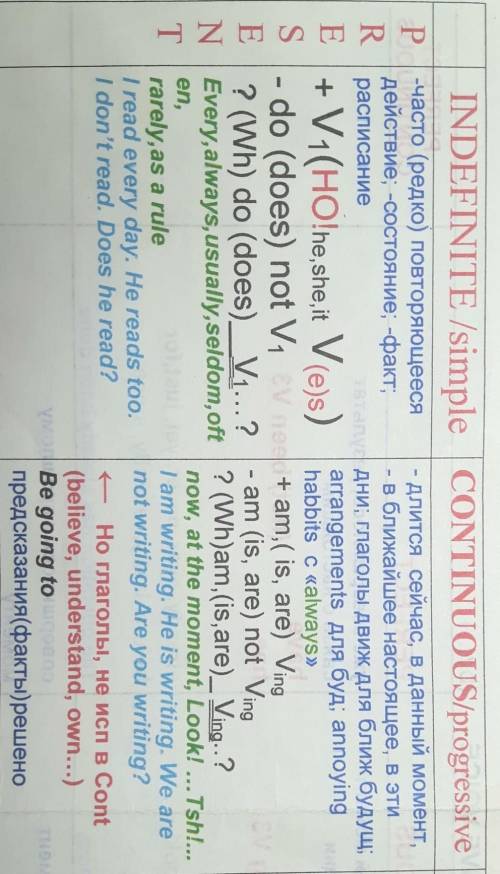 INDEFINITE /simple
CONTINUOUS/progressive
P
R
E
S
E
N
T
-часто (редко) повторяющееся
действие; -состояние; -факт;
расписание
+ V1(НО!he,she,it V(e)s)
- do (does) not V1
? (Wh) do (does)__V1... ?
Every,always,usually,seldom,oft
en,
rarely,as a rule
I read every day. He reads too.
I don't read. Does he read?
- длится сейчас, в данный момент,
- в ближайшее настоящее, в эти
дни; глаголы движ для ближ будущ;
arrangements для буд; annoying
habbits с «always»
+ am,( is, are) Ving
- am (is, are) not Ving
? (Wh)am,(is,are)_ Ving..?
now, at the moment, Look! ... Tsh!...
I am writing. He is writing. We are
not writing. Are you writing?
← Но глаголы, не исп в Cont
(believe, understand, own...)
Be going to
предсказания(факты)решено